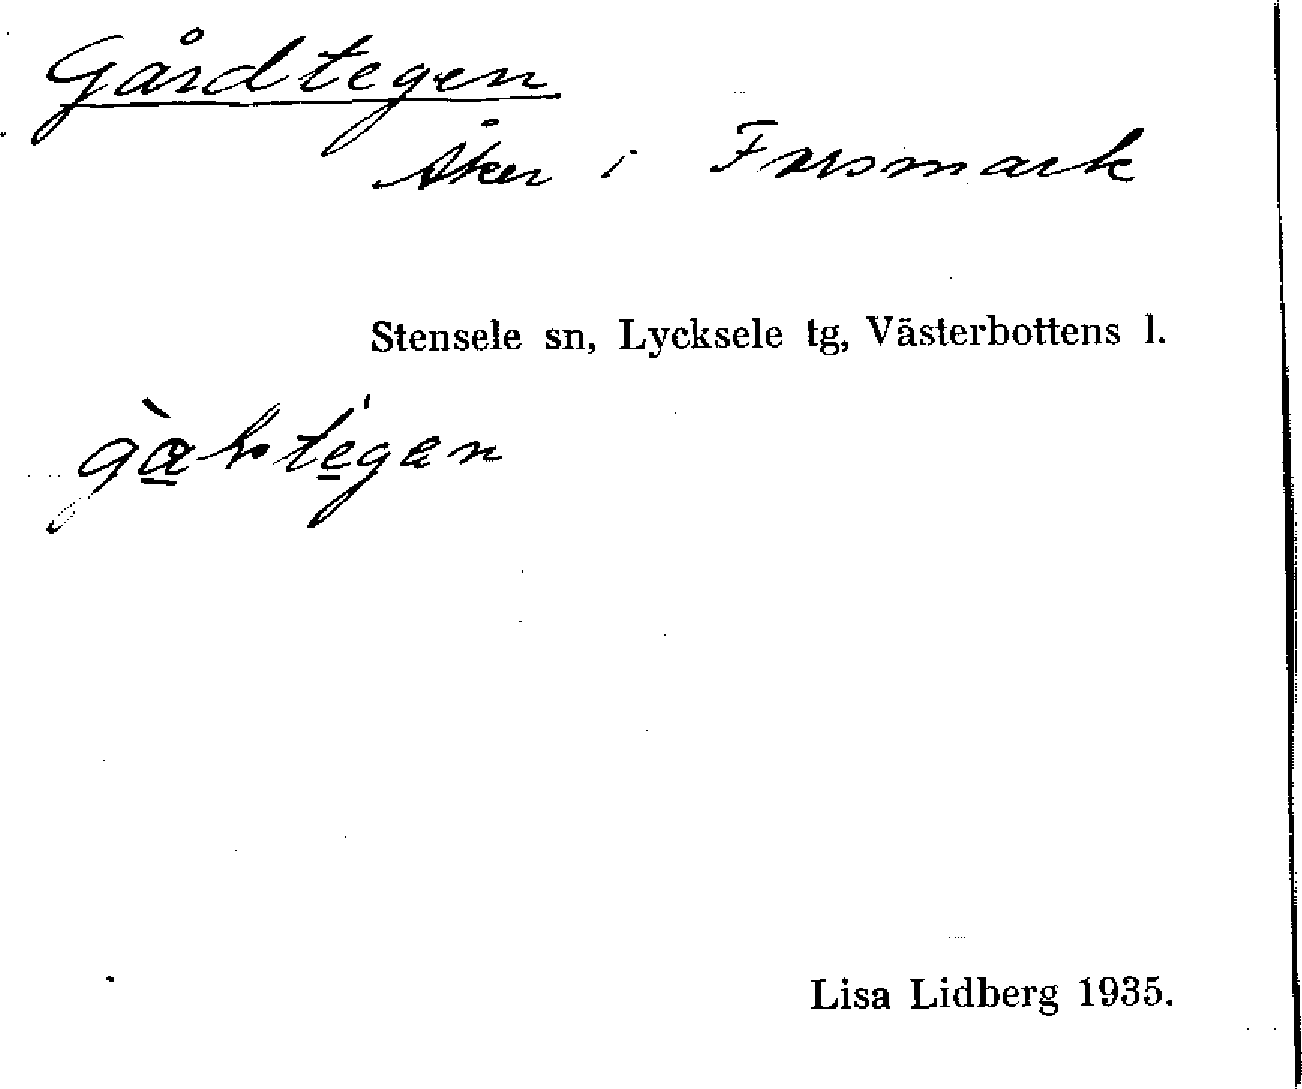 Gårdtegen
Åker i Forsmark
Stensele sn, Lycksele tg, Västerbottens l.
Lisa Lidberg 1935.